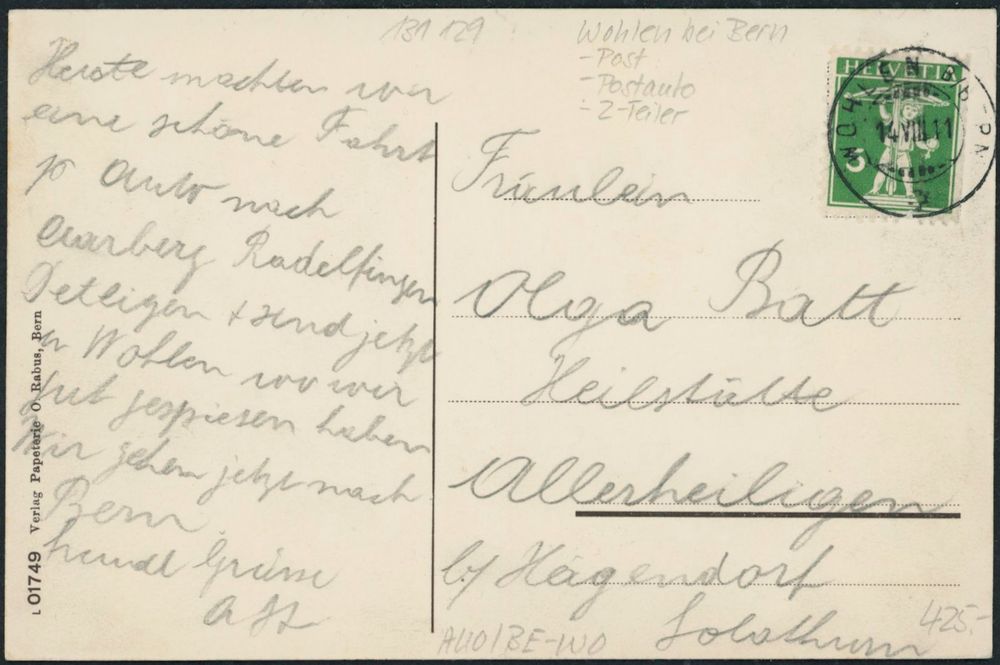 131 129
Wohlen bei Bern
- Post
- Postauto
- 2-Teiler
HELVETIA
5
WOHLEN B/B-RN
14 VIII 11
Heute machten wir
eine schöne Fahrt
p Auto nach
Aarberg Radelfingen
Detligen + sind jetzt
in Wohlen wo wir
gut gespiesen haben
Wir gehen jetzt nach
Bern
freundl Grüsse
L 01749 Verlag Papeterie O. Rabus, Bern
Fräulein
Olga Batt
Heilstätte
Allerheiligen
b/ Hägendorf
Solothurn
AUO/BE-WO
425.-